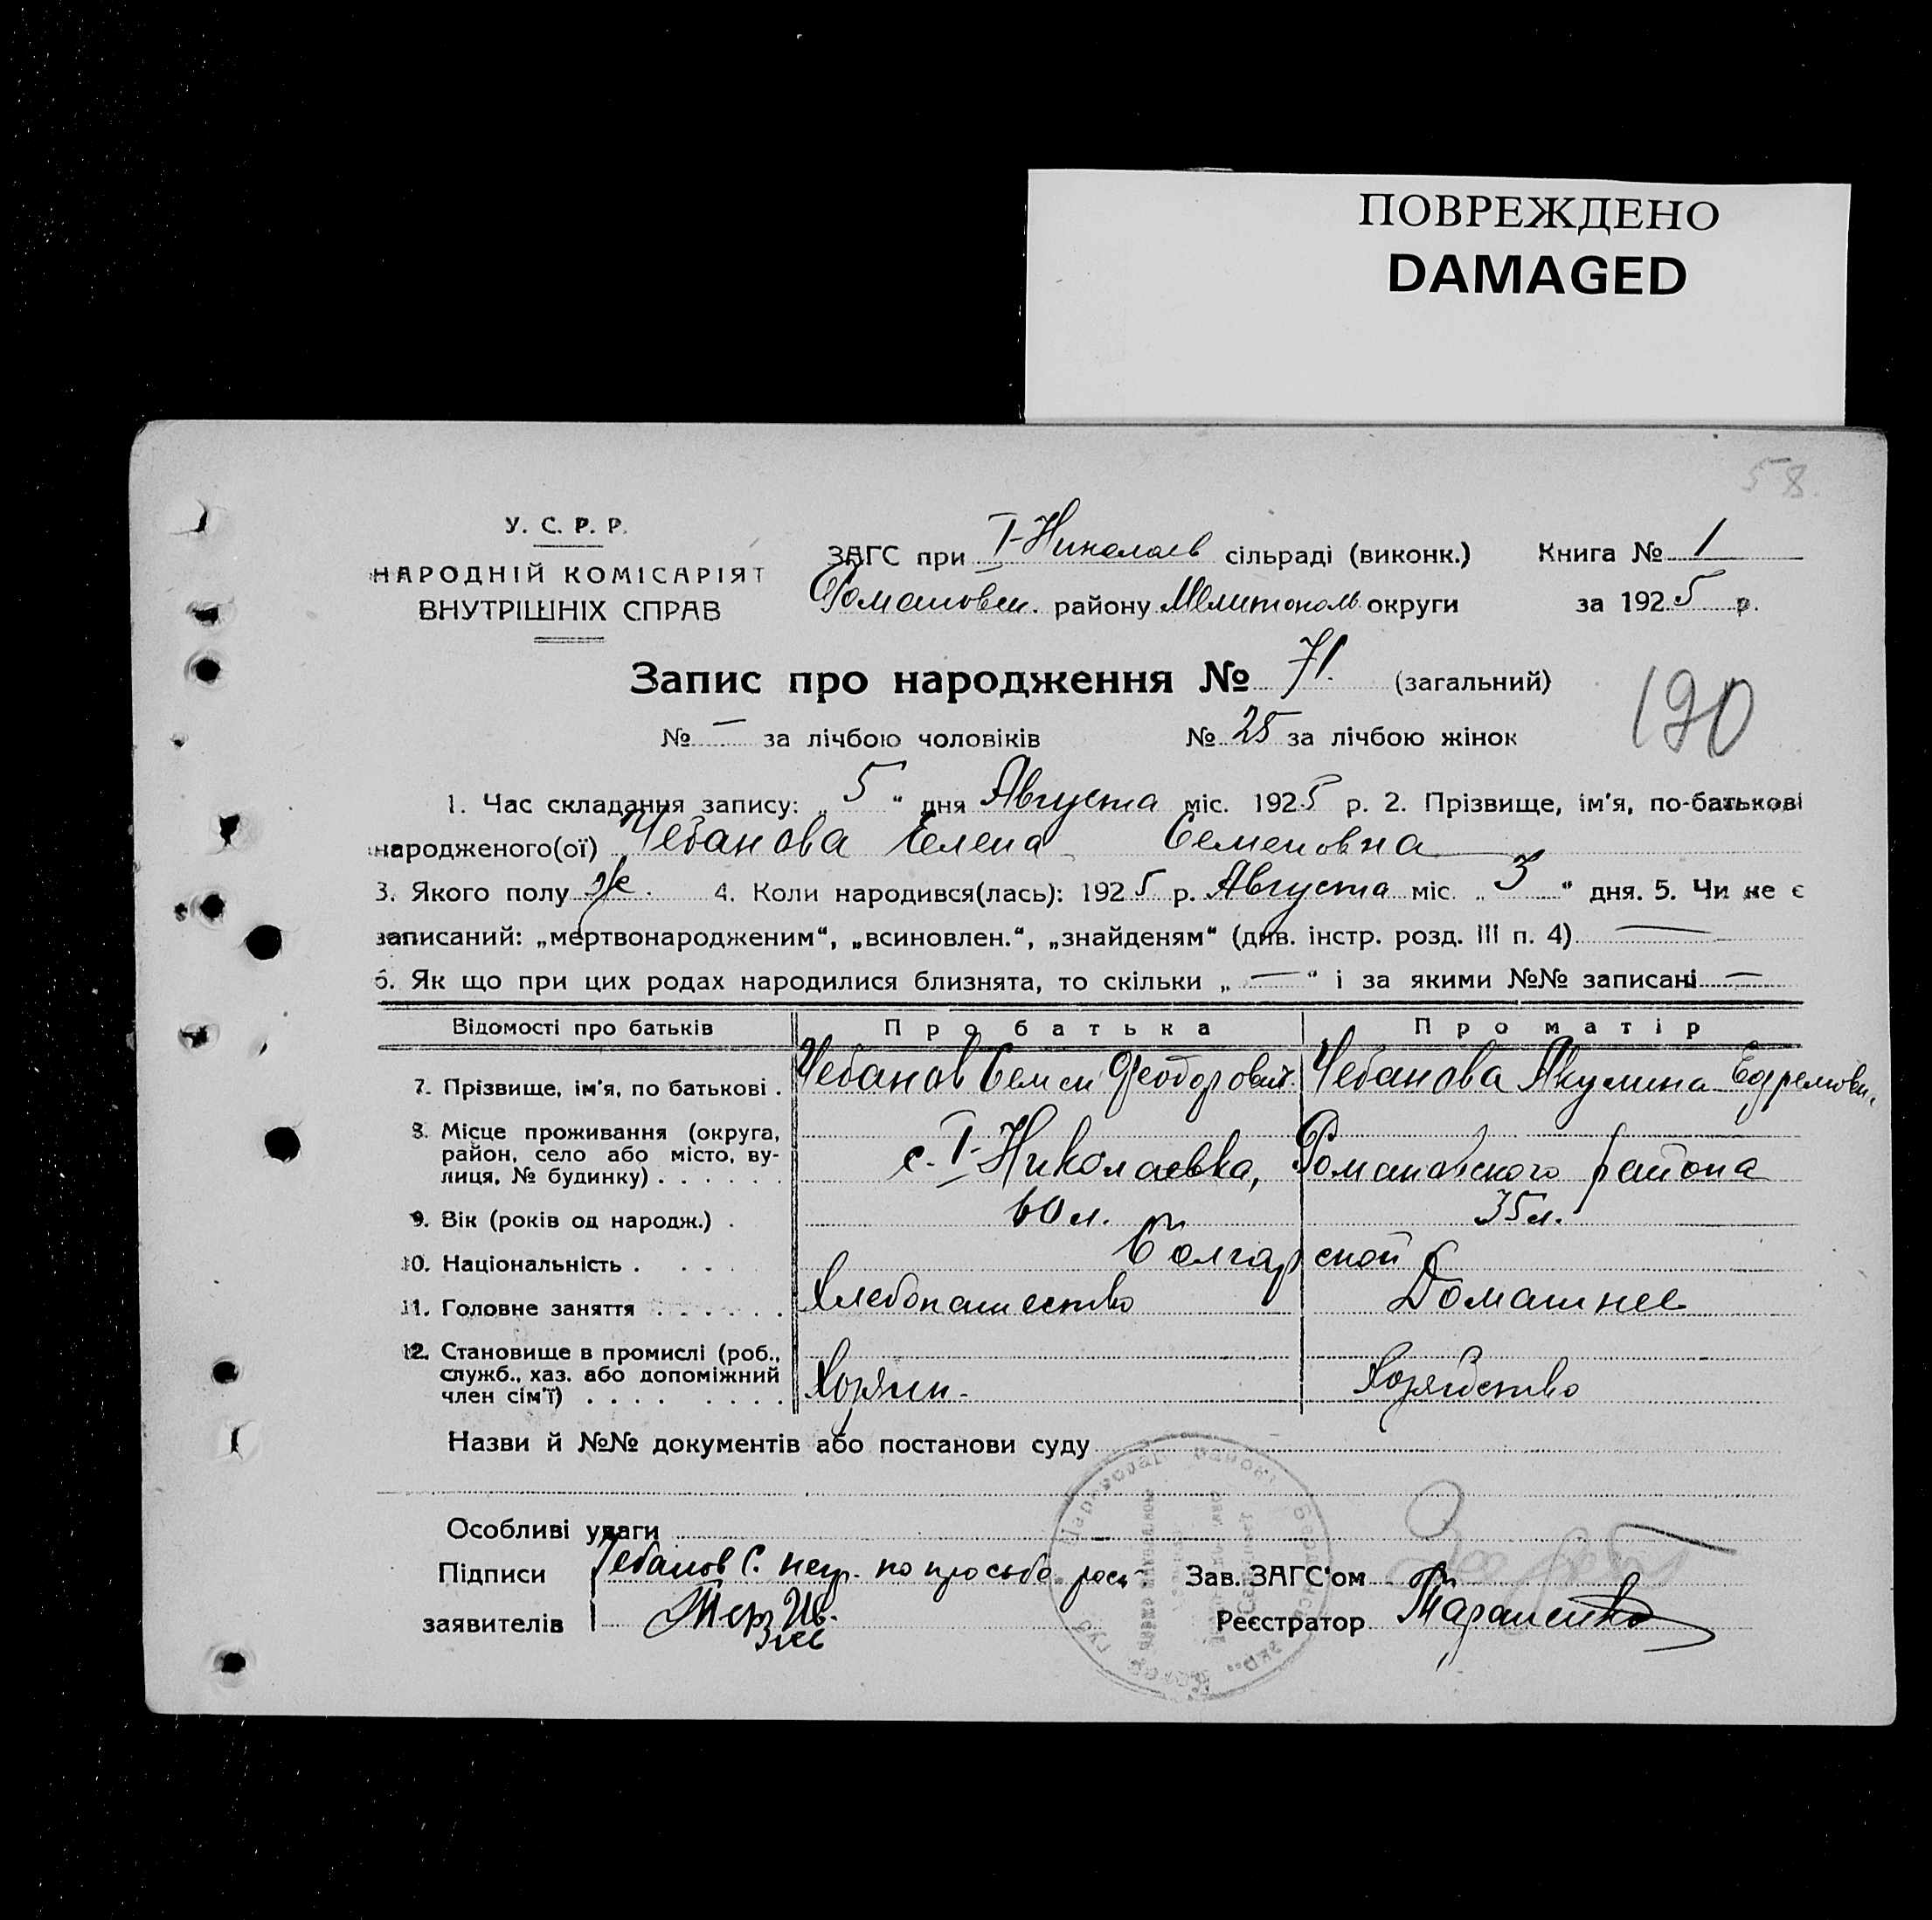 ПОВРЕЖДЕНО
DAMAGED
58
У. С. Р. Р.
НАРОДНІЙ КОМІСАРІЯТ
ВНУТРІШНІХ СПРАВ
ЗАГС при І-Николаев сільраді (виконк.) Книга № 1
Романовск. району Мелитополь округи за 1925 р.
Запис про народження № 71. (загальний)
190
№ — за лічбою чоловіків № 25 за лічбою жінок
1. Час складання запису: „ 5 “ дня Августа міс. 1925 р. 2. Прізвище, ім'я, по-батькові
народженого(ої) Чебанова Елена Семеновна
3. Якого полу ж. 4. Коли народився(лась): 1925 р. Августа міс. „ 3 “ дня. 5. Чи не є
записаний: „мертвонародженим“, „всиновлен.“, „знайденям“ (див. інстр. розд. III п. 4) —
6. Як що при цих родах народилися близнята, то скільки „ — “ і за якими №№ записані —
Відомості про батьків Про батька Про матір
7. Прізвище, ім'я, по батькові . Чебанов Семен Феодорович. Чебанова Акулина Ефремовн.
8. Місце проживання (округа,
район, село або місто, ву-
лиця, № будинку) . . . . . . с. І-Николаевка, Романовского района
9. Вік (років од народж.) . 60 л. 35 л.
10. Національність . . . . . Болгарской
11. Головне заняття . . . . . . Хлебопашество Домашнее
12. Становище в промислі (роб.,
служб., хаз. або допоміжний
член сім'ї) . . . . . . . . Хозяин. Хозяйство
Назви й №№ документів або постанови суду
Особливі уваги
Підписи Чебанов С. негр. по просьбе рос. Зав. ЗАГС'ом
заявителів Реєстратор Тараненко